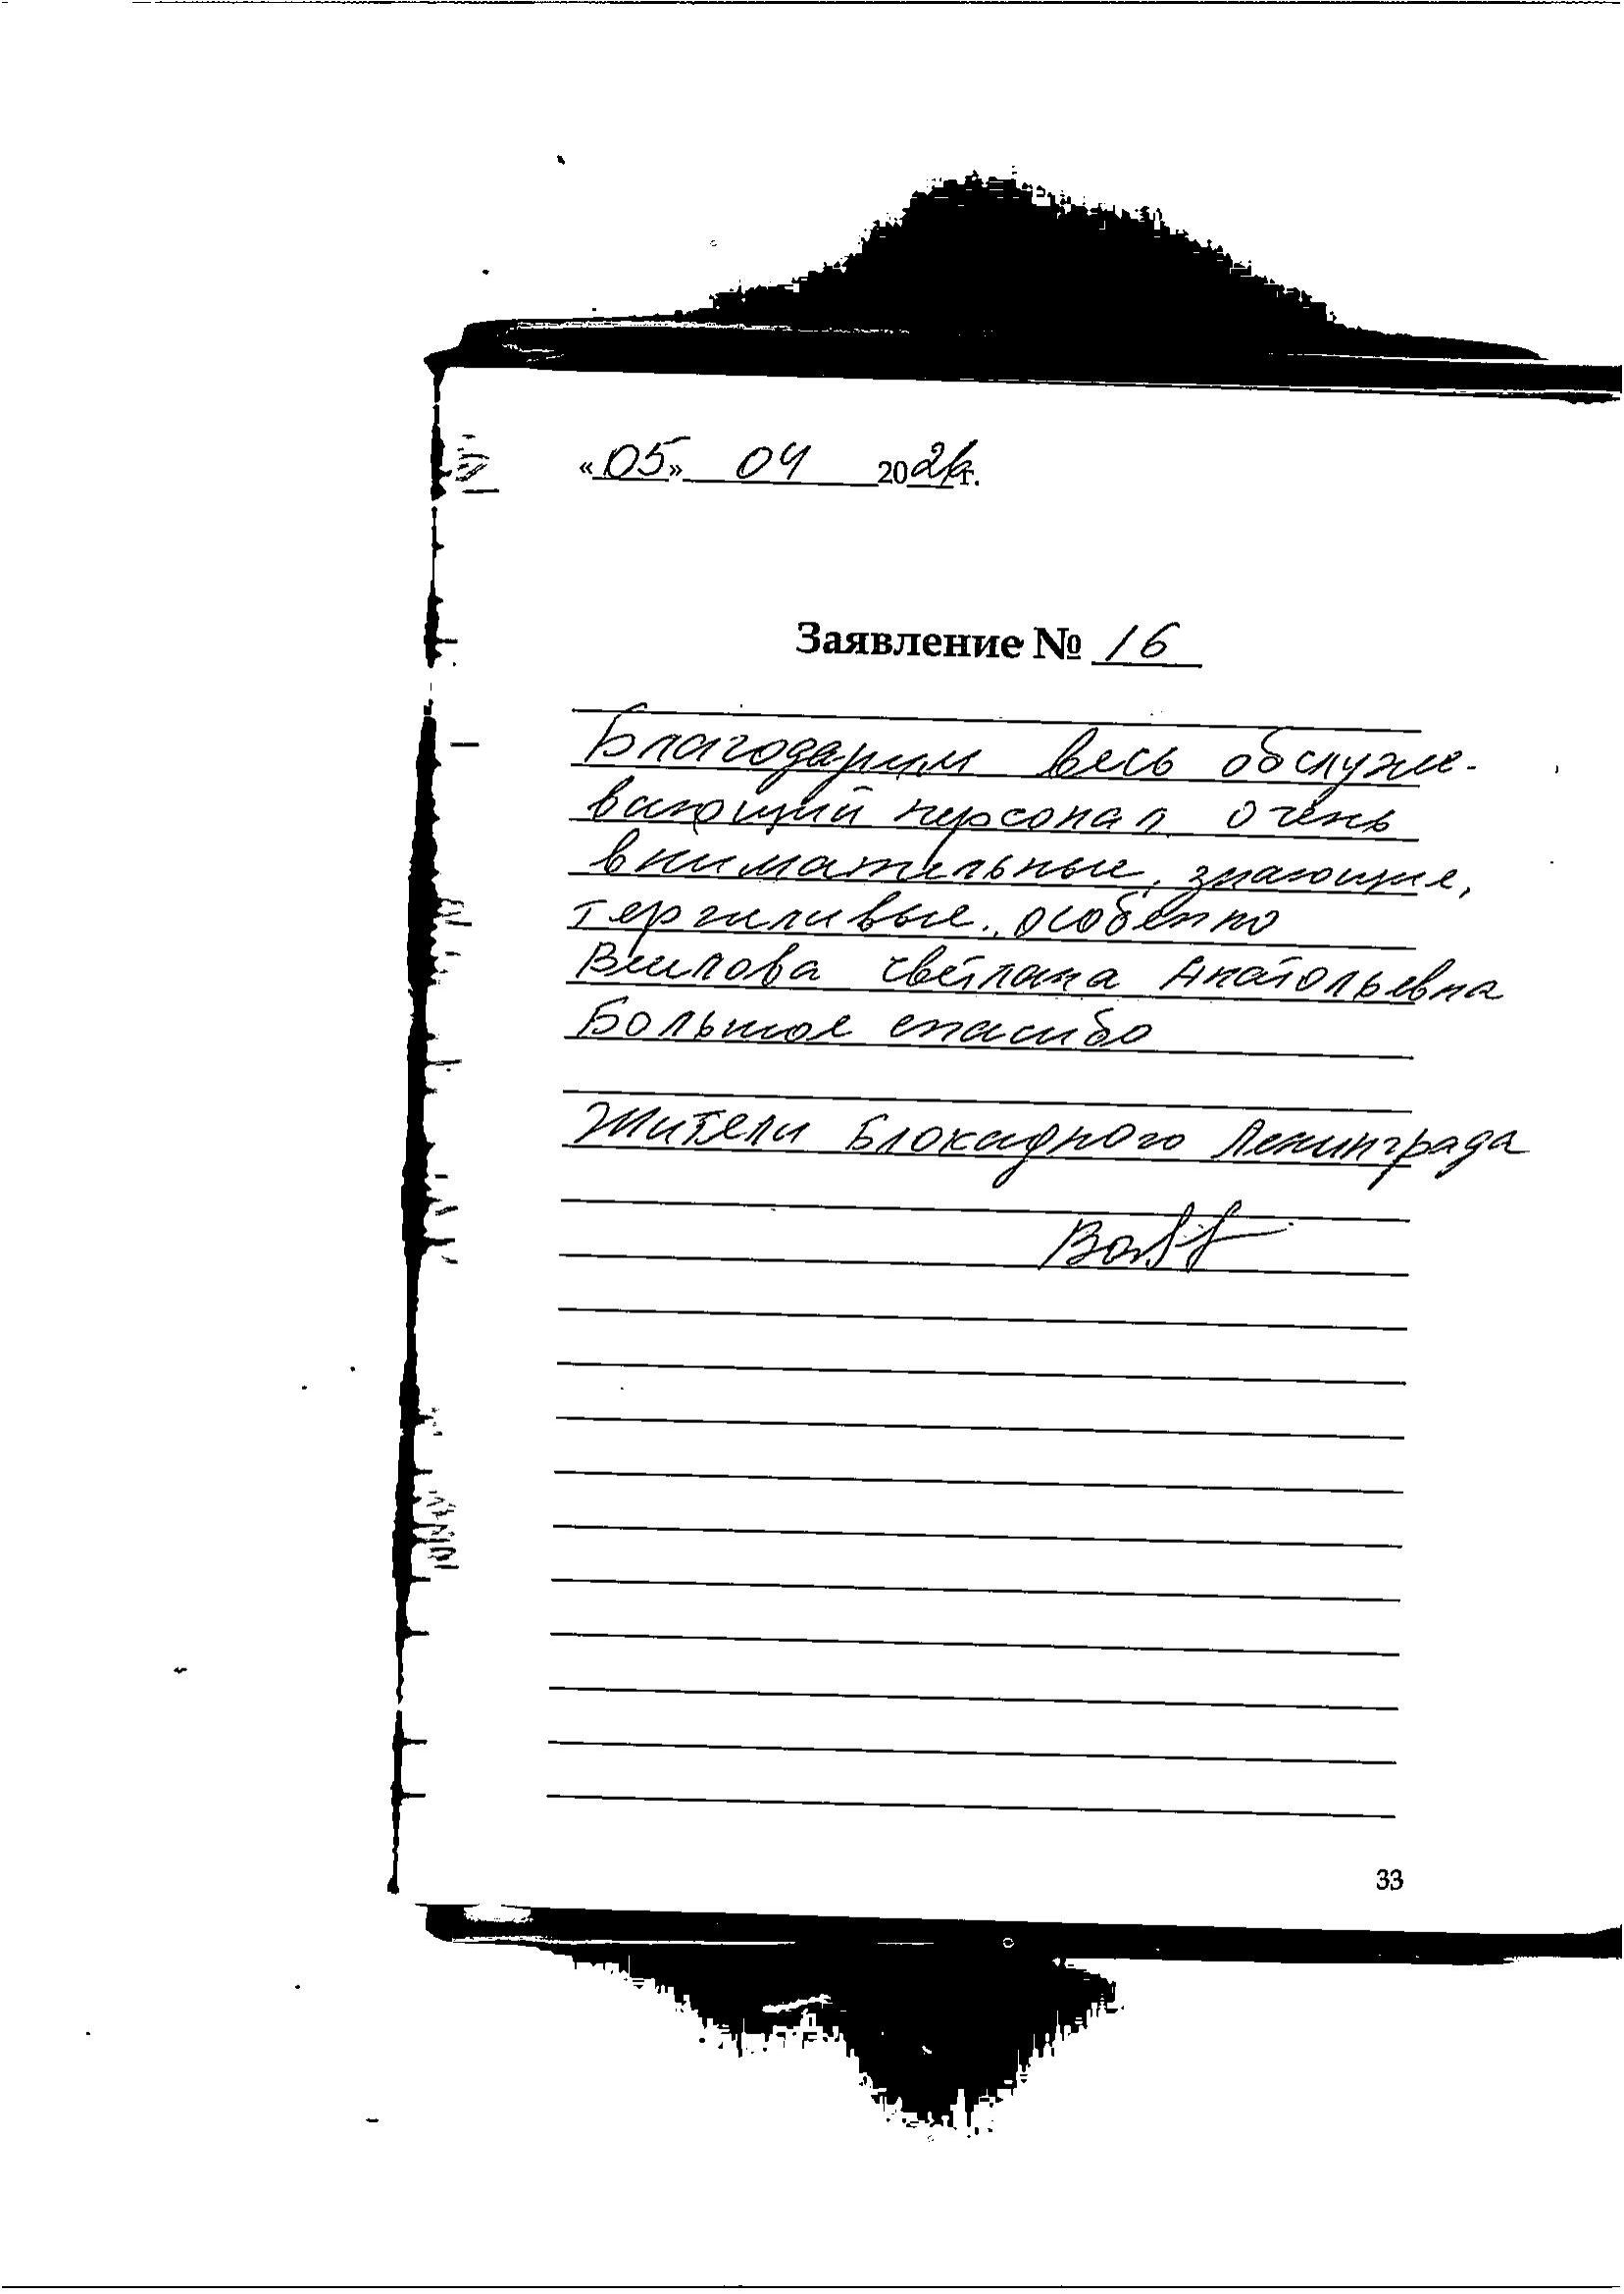 «05» 04 2021г.
Заявление № 16
Благодарим весь обслужи-
вающий персонал очень
внимательные, знающие,
терпиливые., особенно
Светлана Анатольевна
Большое спасибо
Жители Блокадного Ленинграда
33